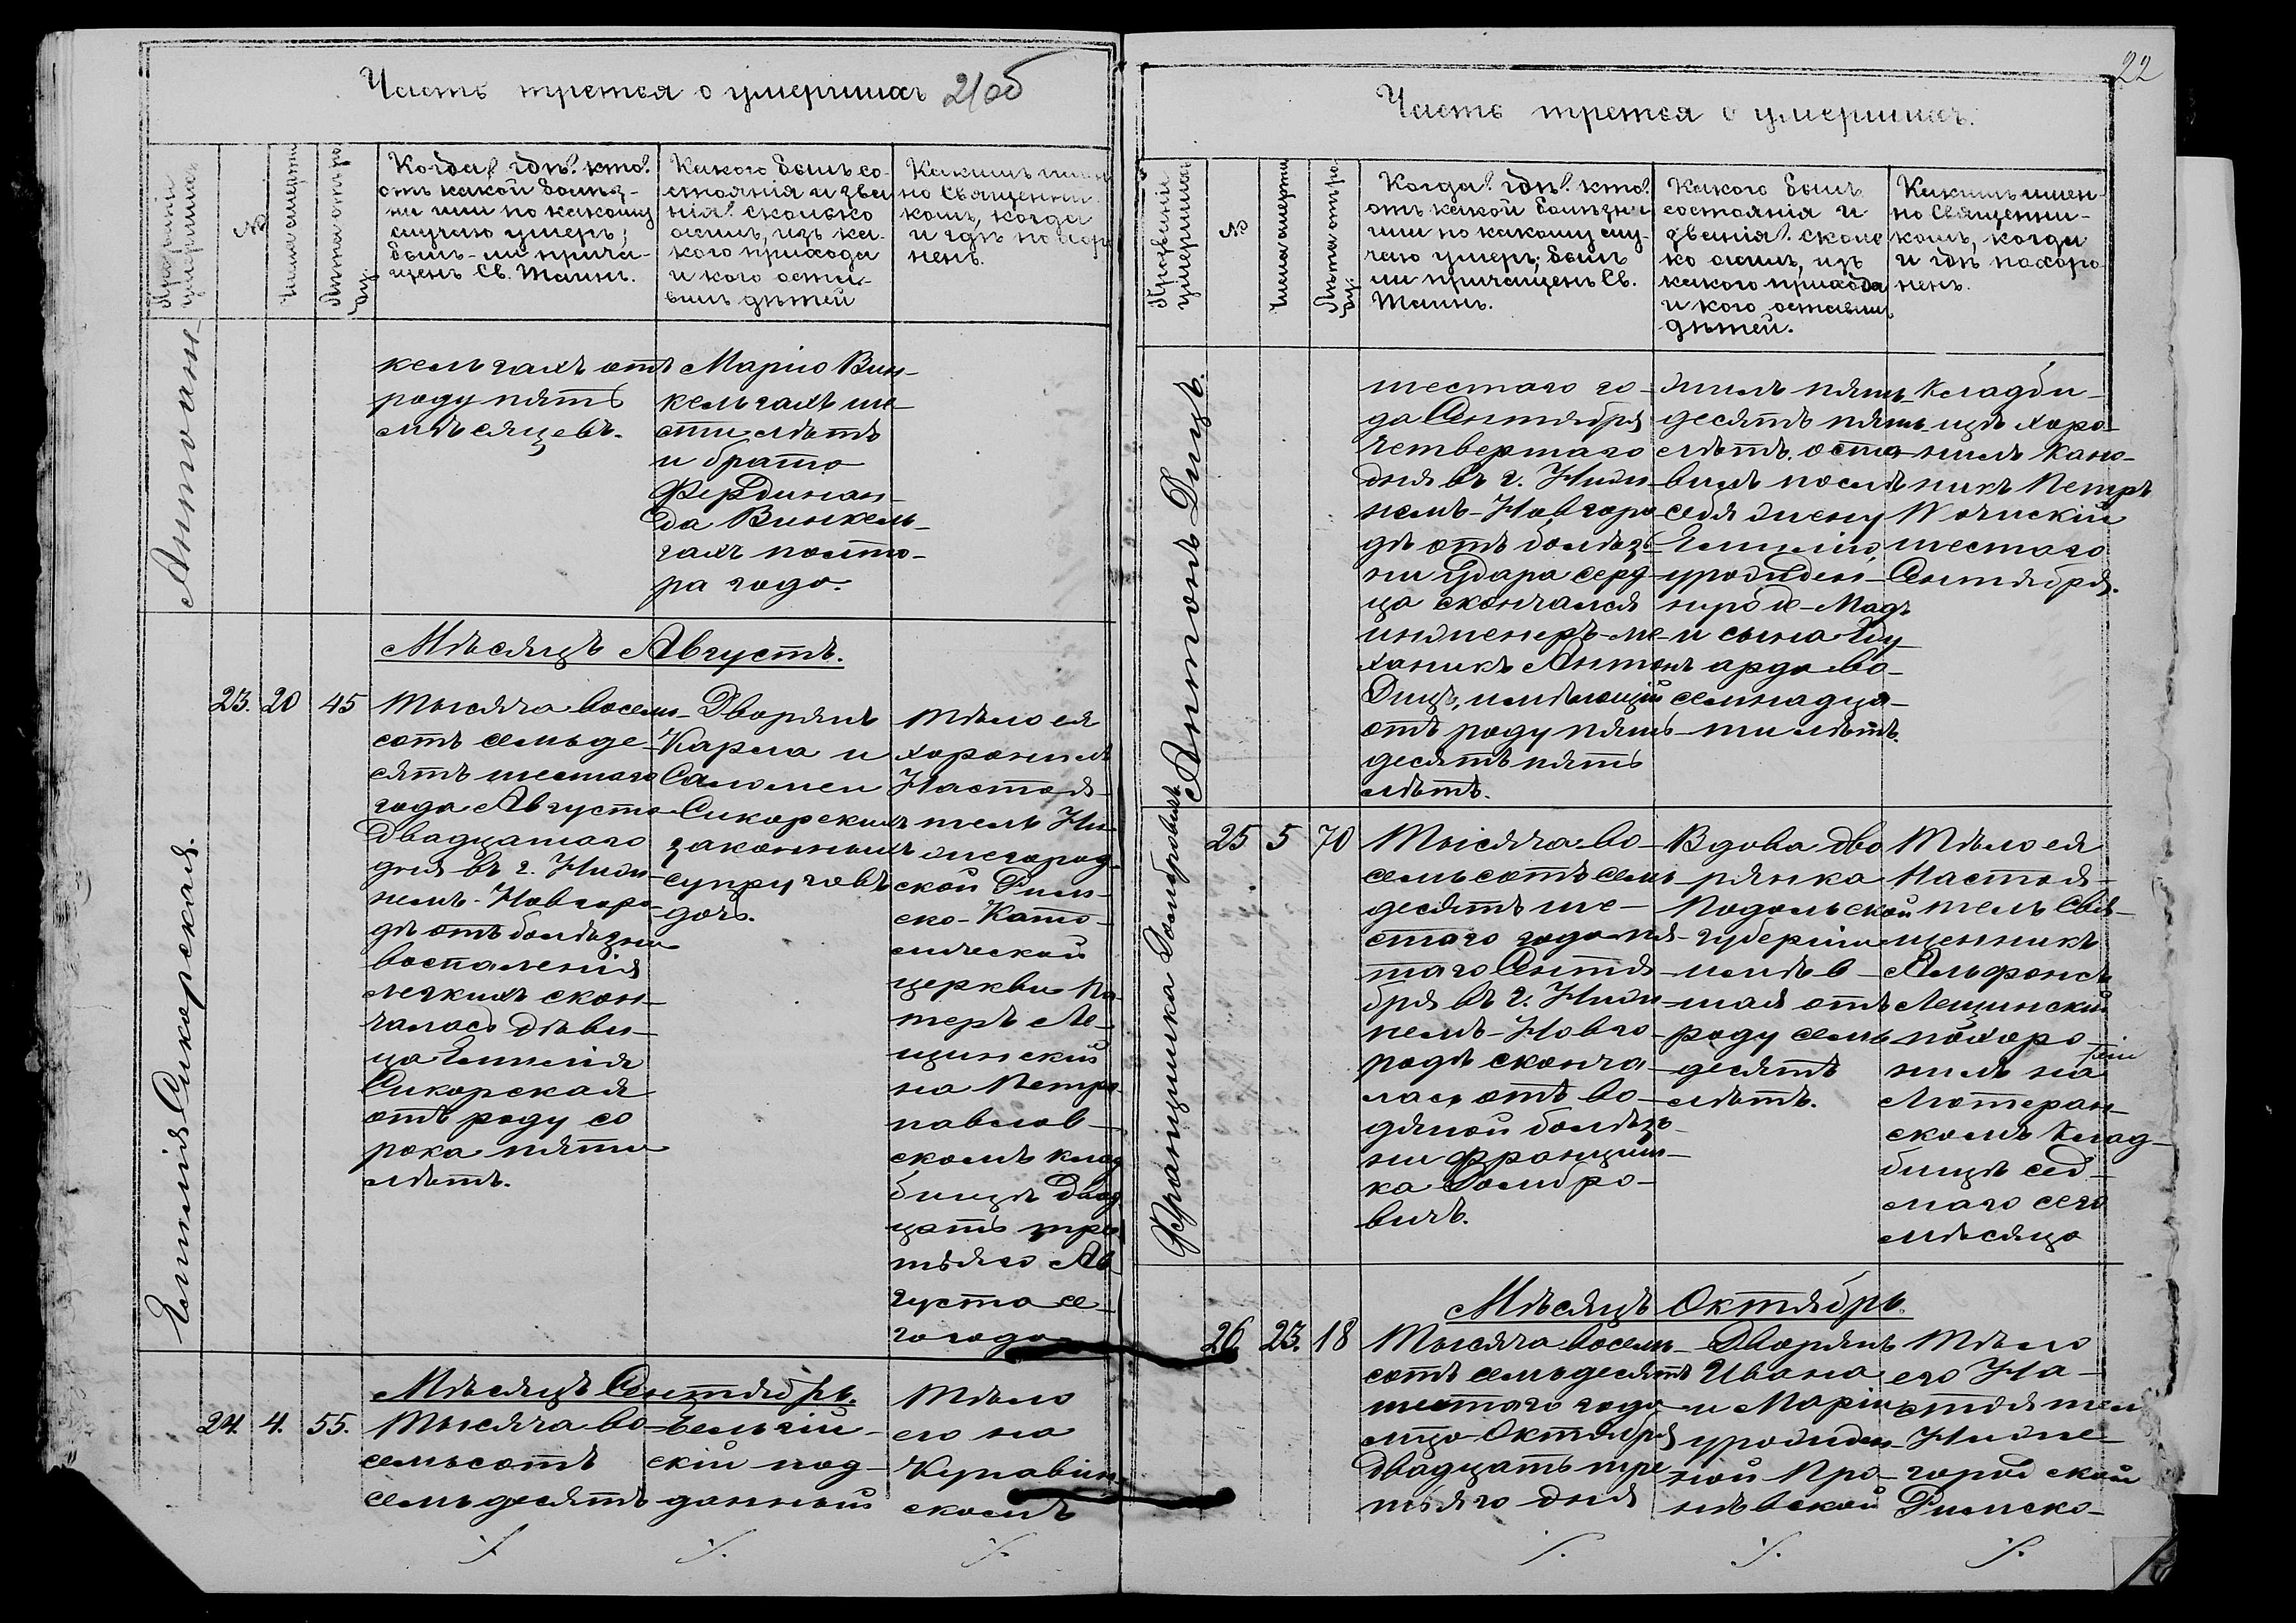 Часть третья о умершихъ 21об
Прозваніе умершихъ
№
Числа смерти
Лѣта отъ роду.
Когда? гдѣ? кто?
отъ какой болѣз-
ни или по какому
случаю умеръ;
былъ-ли прича-
щенъ Св. Таинъ.
Какого былъ со-
стоянія и зва
нія? сколько
жилъ, изъ ка-
кого прихода
и кого оста-
вилъ дѣтей
Какимъ имен
но Священни
комъ, когда
и гдѣ похоро
ненъ.
кельгахъ отъ
роду пять
мѣсяцевъ.
Марію Вин-
кельгахъ ше-
сти лѣтъ
и брата
Фердинан-
да Винкель-
гахъ полто-
ра года.
Мѣсяцъ Августъ.
Емилія Сикорская.
23. 20 45
Тысяча восемь-
сотъ семьде-
сятъ шестаго
года Августа
двадцатаго
дня въ г. Ниж-
немъ-Новгоро-
дѣ отъ болѣзни
воспаленія
легкихъ скон-
чалась дѣви-
ца Емилія
Сикорская
отъ роду со
рока пяти
лѣтъ.
Дворянъ
Карла и
Саломеи
Сикорскихъ
законныхъ
супруговъ
дочь.
Тѣло ея
хоронилъ
Настоя-
тель Ни-
жегород-
ской Рим-
ско-Като-
лической
церкви Па-
теръ Ле-
щинскій
на Петро
павлов-
скомъ клад
бищѣ двад
цать тре
тьяго Ав-
густа се-
го года
Мѣсяцъ Сентябрь.
24. 4. 55.
Тысяча во-
семьсотъ
семьдесятъ
Бельгій-
скій под-
данный
Тѣло
его на
Кунавин-
скомъ
22
Часть третья о умершихъ.
Прозваніе умершихъ
№
Числа смерти
Лѣта отъ роду.
Когда? гдѣ? кто?
отъ какой болѣзни
или по какому слу-
чаю умеръ; былъ
ли причащенъ Св.
Таинъ.
Какого былъ
состоянія и
званія? сколь
ко жилъ, изъ
какого прихода
и кого оставилъ
дѣтей.
Какимъ имен-
но Священни-
комъ, когда
и гдѣ похоро
ненъ.
шестаго го-
да Сентября
четвертаго
дня въ г. Ниж-
немъ-Новгоро
дѣ отъ болѣз-
ни удара серд-
ца скончался
инженеръ-ме-
ханикъ Антонъ
имѣющій
отъ роду пять-
десятъ пять
лѣтъ.
жилъ пять-
десятъ пять
лѣтъ. оста-
вилъ послѣ
себя жену
Емилію
урожден-
и сына Эду
арда во-
семнадца-
ти лѣтъ.
Кладби-
щѣ хоро-
нилъ Кано-
никъ Петръ
шестаго
Сентября.
Францишка Домбровичъ
25 5 70
Тысяча во-
семьсотъ семь
десятъ ше-
стаго года пя-
таго Сентя-
бря въ г. Ниж
немъ-Новго-
родѣ сконча
лась отъ во-
дяной болѣз-
ни Францыш-
ка Домбро-
вичъ.
Вдова дво
рянка
Подольской
губерніи
имѣв-
шая отъ
роду семь
десятъ
лѣтъ.
Тѣло ея
Настоя-
тель Свя-
щенникъ
Альфонсъ
Лещинскій
похоро-
нилъ на
Лютеран-
скомъ Клад-
бищѣ сед-
маго сего
мѣсяца
Мѣсяцъ Октябрь.
26. 23. 18
Тысяча восемь-
сотъ семьдесятъ
шестаго года
мца Октября
двадцать тре
тьяго дня
Дворянъ
Ивана
и Маріи
урожден-
ной Про-
невской
Тѣло
его На-
стоятель
Нижне-
городской
Римско-